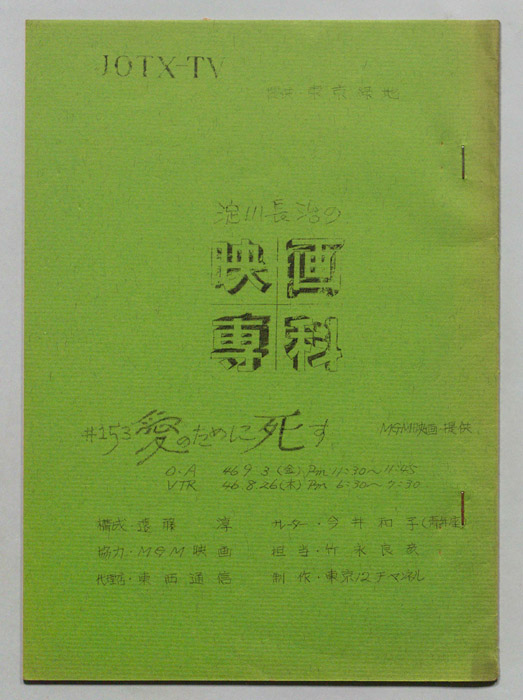 JOTX-TV
東京緑地
淀川長治の
映画
専科
#153 愛のために死す
MGM映画・提供
O.A 46 9. 3 (金) Pm 11:30〜11:45
VTR 46. 8. 26 (木) Pm 6:30〜7:30
構成・遠藤 淳
ナレーター・今井和子(青年座)
協力・MGM映画
担当・竹永良彦
代理店・東西通信
制作・東京12チャンネル